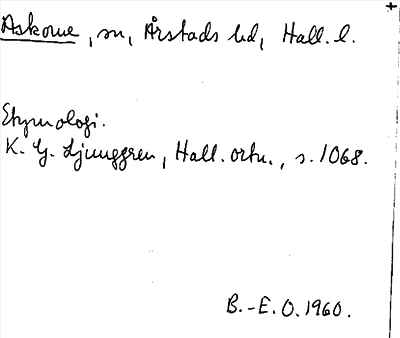 Askome, sn, Årstads hd, Hall. l.
Etymologi.
K. G. Ljunggren, Hall. ortn., s. 1068.
B.-E. O. 1960.